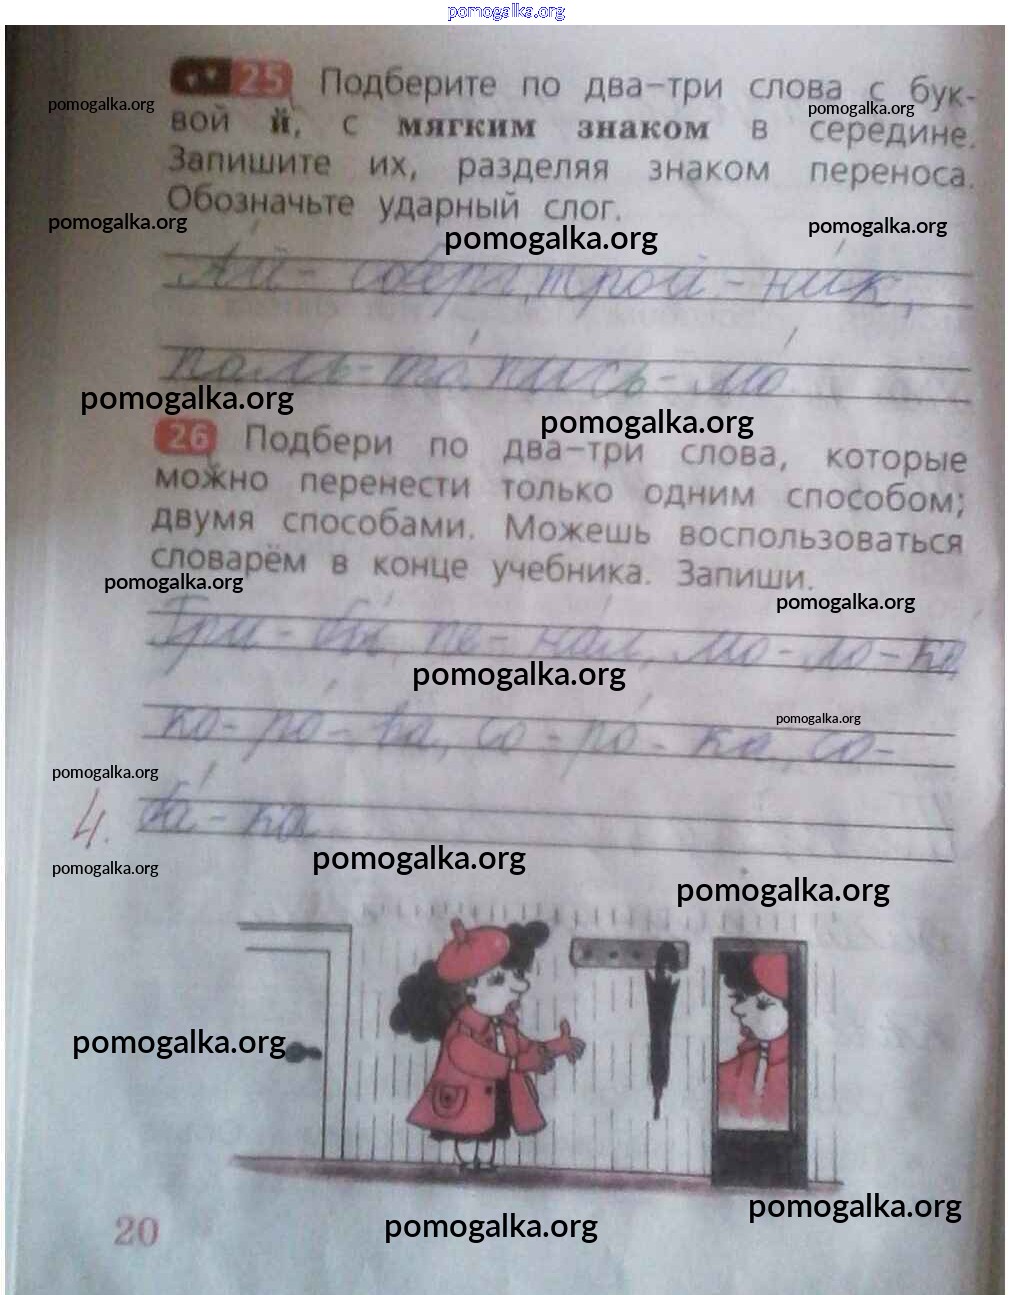 pomogalka.org
25 Подберите по два–три слова с бук-
pomogalka.org pomogalka.org
вой й, с мягким знаком в середине.
Запишите их, разделяя знаком переноса.
Обозначьте ударный слог.
pomogalka.org pomogalka.org pomogalka.org
Ай- сберг, трой-ник,
паль-то, пись-мо.
pomogalka.org pomogalka.org
26 Подбери по два–три слова, которые
можно перенести только одним способом;
двумя способами. Можешь воспользоваться
словарём в конце учебника. Запиши.
pomogalka.org pomogalka.org
Гри-бы, пе-нал, мо-ло-ко,
pomogalka.org
ко-ро-ва, со-ро-ка, со-
pomogalka.org
pomogalka.org
4. ба-ка.
pomogalka.org pomogalka.org
pomogalka.org
pomogalka.org
20 pomogalka.org pomogalka.org